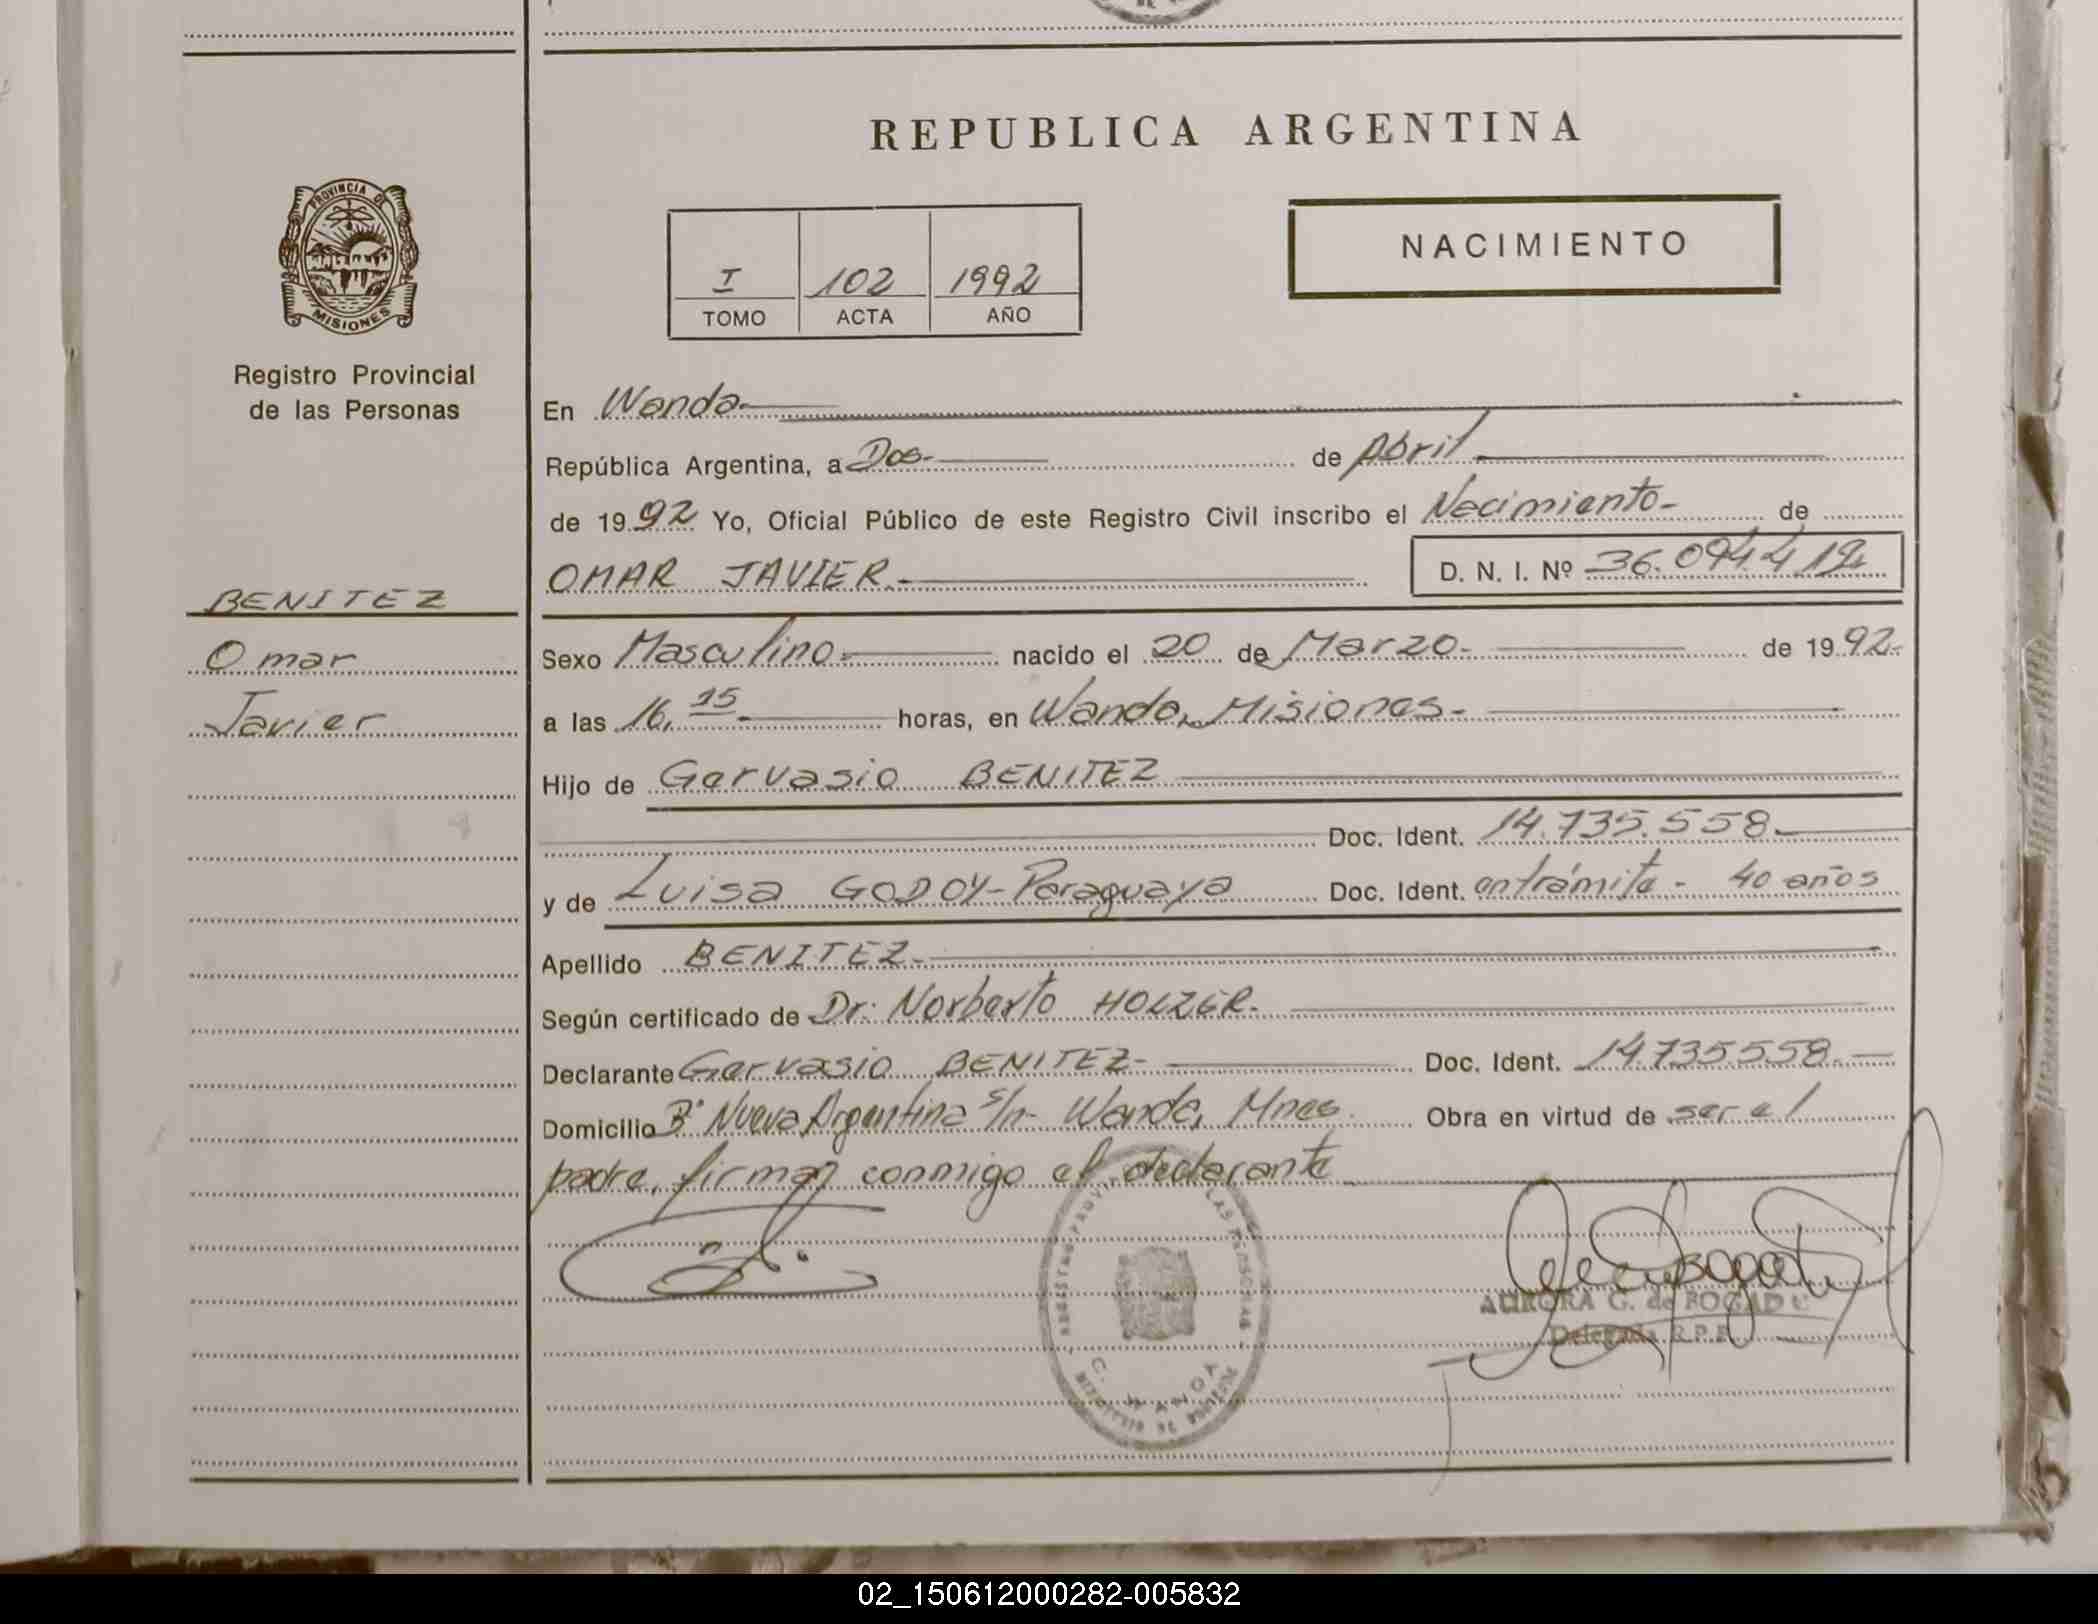 REPUBLICA ARGENTINA
PROVINCIA DE
MISIONES
Registro Provincial
de las Personas
NACIMIENTO
I 102 1992
TOMO ACTA AÑO
En Wanda
República Argentina, a Dos de Abril
de 1992 Yo, Oficial Público de este Registro Civil inscribo el Nacimiento de
OMAR JAVIER D. N. I. Nº
BENITEZ
Omar
Javier
Sexo Masculino nacido el 20 de Marzo de 1992
a las 16,15 horas, en Wanda, Misiones
Hijo de Gervasio BENITEZ
Doc. Ident. 14.735.558
y de Luisa GODOY - Paraguaya Doc. Ident. en trámite - 40 años
Apellido BENITEZ
Según certificado de Dr. Norberto HOLZER
Declarante Gervasio BENITEZ Doc. Ident. 14.735558
Domicilio Bº Nueva Argentina s/n - Wanda, Mnes. Obra en virtud de ser el
padre, firman conmigo el declarante
AURORA G. de FOGAD
Delegada R.P.P.
02_150612000282-005832